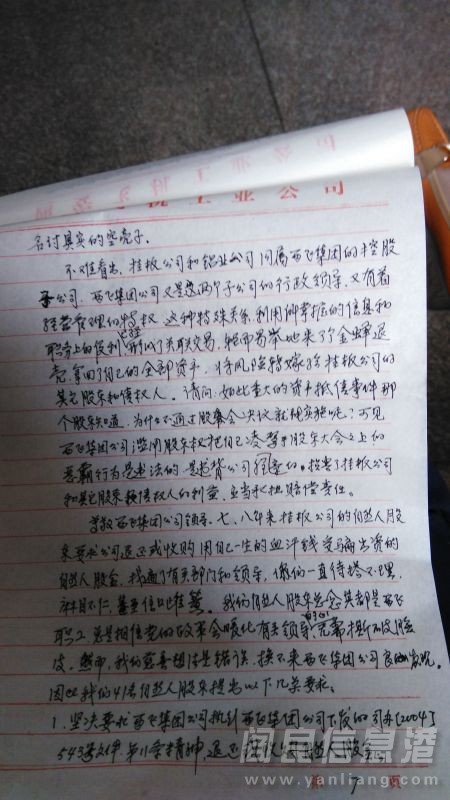 机工业公司
名讨其实的空壳子。
不难看出，挂板公司和铝业公司同属西飞集团的控股
子公司，西飞集团公司又是这两个子公司的行政领导，又有着
经营管理们的特权，这种特殊关系，利用所掌握的信息和
职务上的便利形成了关联交易，轻而易举地来了个金蝉退
壳，拿回了自己的全部资本，将风险转嫁给挂板公司的
其它股东和债权人。请问：如此重大的资产抵债事件那
个股东知道，为什么不通过股东会决议就现实施呢？可见
西飞集团公司滥用股东权把自己凌驾于股东大会之上的
恶霸行为是违法的，是违背公司章程的。损害了挂板公司
和其它股东债权人们的利益，应当承担赔偿责任。
尊敬西飞集团公司领导，七、八年来挂板公司的自然人股
东要求公司退还或收购用自己一生的血汗钱出资的
自然人股金，找遍了有关部门和领导，他们一直待搭不理，
麻木不仁，我们自然人股东总念其都是西飞
职工总是相信党的政策会暖化有关领导
皮。然而，我们的慈善想法是错误，换不来西飞集团公司良心发现。
因此我们41名自然人股东提出以下几条要求：
1.坚决要求西飞集团公司执行西飞集团公司下发的司办[2004]
543号文件第11条精神，退还挂板公司自然人股金。
第 7 页
阎良信息港
www.yanliang.com